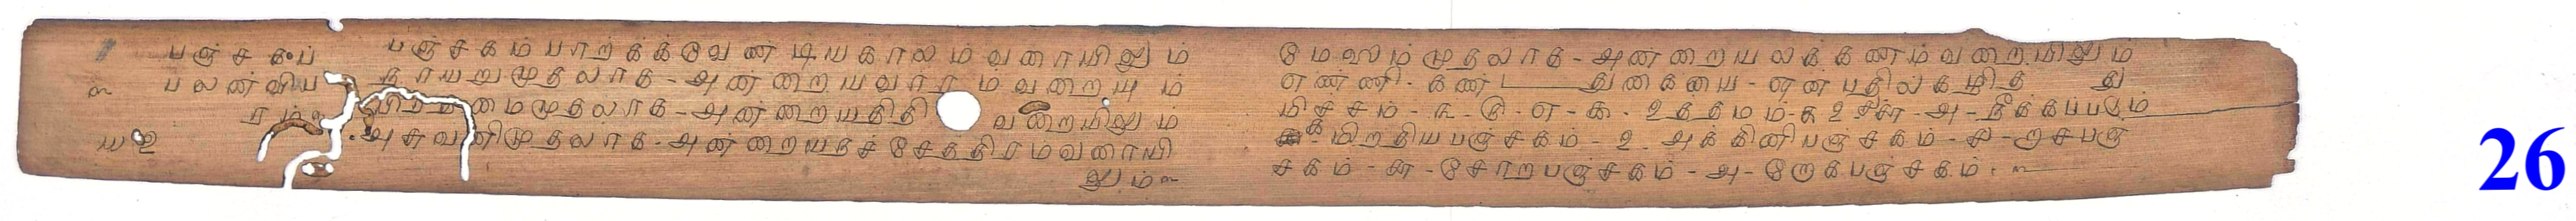 பஞ்சகப்
பலன்விப
ரம்
யஉ
பஞ்சகம்பாற்க்க்வேண்டியகாலம்வரையிலும்
நாயறுமுதலாக - அன்றையவாரம்வறையும்
பிறதமைமுதலாக - அன்றையதிதி வறையிலும்
அசுவனிமுதலாக - அன்றையநச்சேத்திரம்வரையி
லும்
மேஷம்முதலாக - அன்றையலக்கணம்வறையிலும்
எண்ணி - கண்டதுகையை - ஒன்பதில்கழித்து
மிச்சம் - ௩ - ரு - எ - ௯ - உத்தமம் - க உ ச சா - அ - நீக்கப்படும்
க - மிறதியபஞ்சகம் - உ - அக்கினிபஞ்சகம் - ச - றாசபஞ்
சகம் - சா - சோறபஞ்சகம் - அ - றோகபஞ்சகம்
26